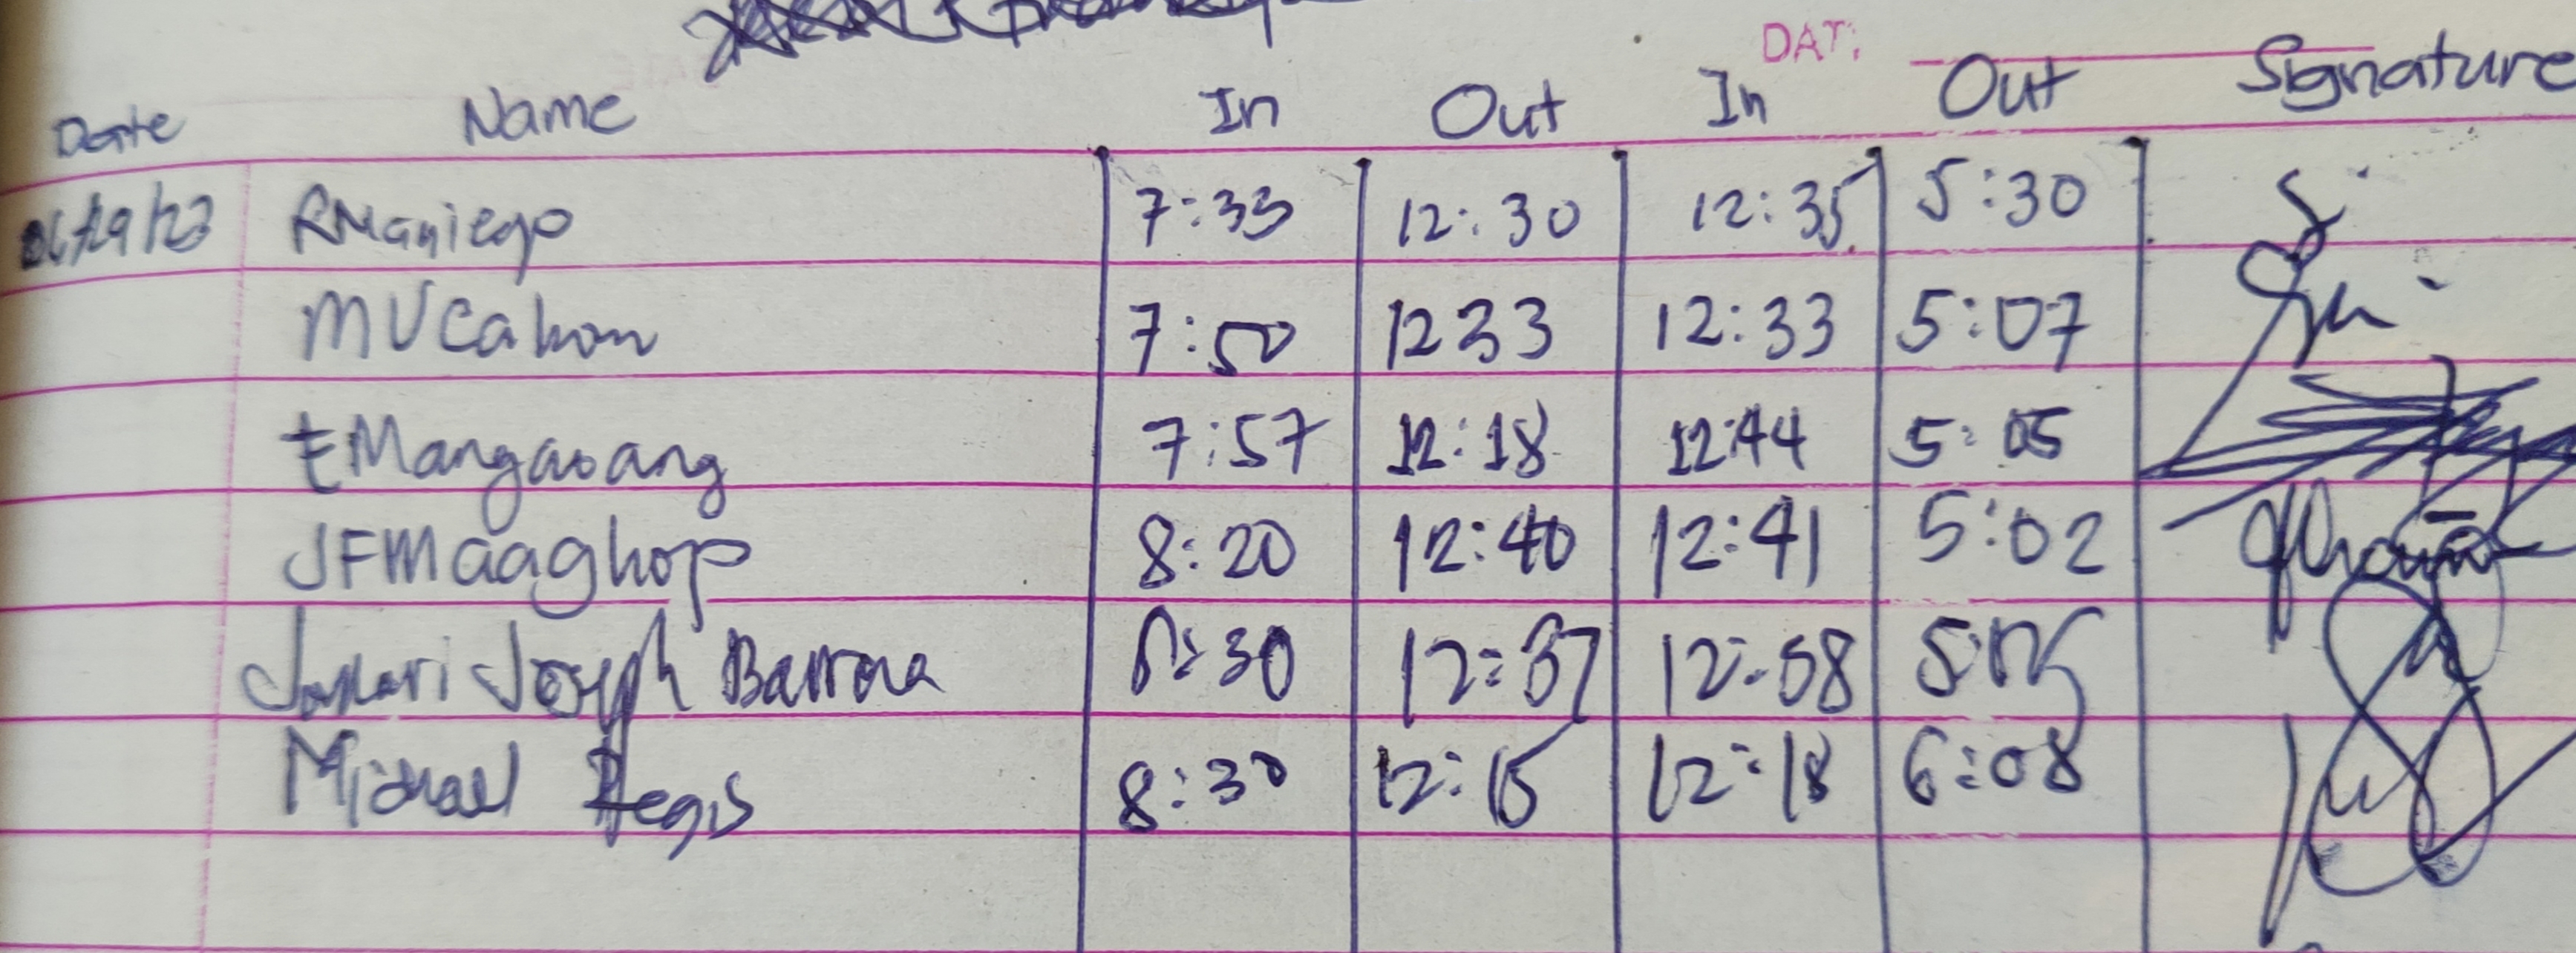 DAT:
Date Name In Out In Out Signature
06/29/23 RManiego 7:33 12:30 12:35 5:30
MVCahom 7:50 1233 12:33 5:07
EMangaoang 7:57 12:18 12:44 5:05
JFMaaghop 8:20 12:40 12:41 5:02
Joseph 8:30 12:37 12:58 5:05
Michael Regis 8:30 12:15 12:18 6:08